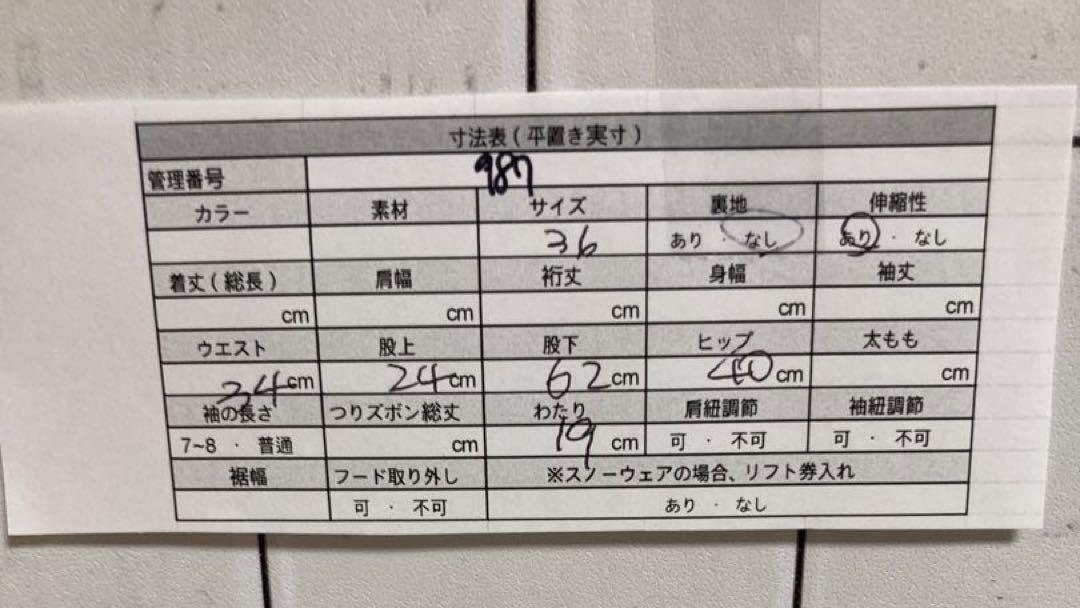 寸法表(平置き実寸)
管理番号 987
カラー 素材 サイズ 裏地 伸縮性
36 あり ・ なし あり ・ なし
着丈(総長) 肩幅 裄丈 身幅 袖丈
cm cm cm cm cm
ウエスト 股上 股下 ヒップ 太もも
34cm 24cm 62cm 40cm cm
袖の長さ つりズボン総丈 わたり 肩紐調節 袖紐調節
7~8 ・ 普通 cm 19cm 可 ・ 不可 可 ・ 不可
裾幅 フード取り外し ※スノーウェアの場合、リフト券入れ
可 ・ 不可 あり ・ なし